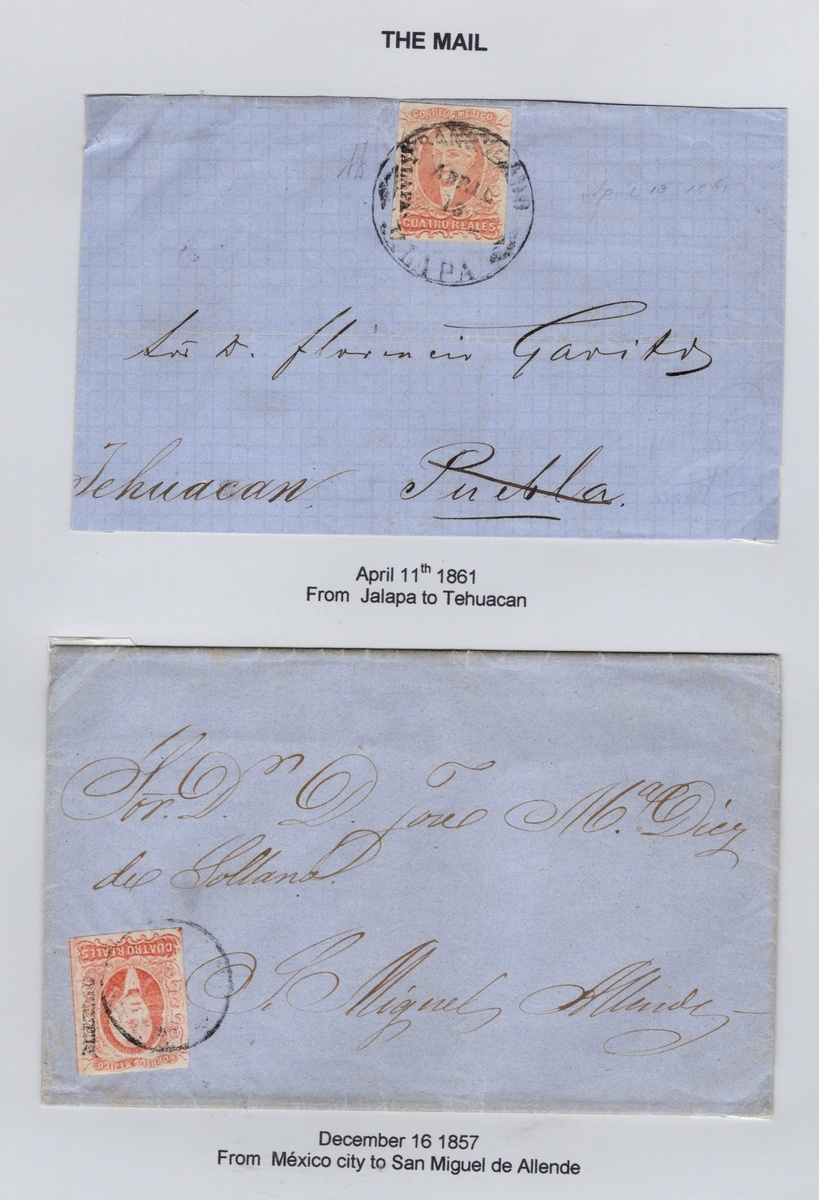 THE MAIL
CORREOS MEJICO
FRANQUEADO
JALAPA
ABRIL
CUATRO REALES
JALAPA
Sór D. Florencio Gavito
Tehuacan. Puebla.
April 11th 1861
From Jalapa to Tehuacan
Sor. Dn. D. José Ma. Diez
de Sollano.
CUATRO REALES
CORREOS MEJICO
S. Miguel Allende
December 16 1857
From México city to San Miguel de Allende